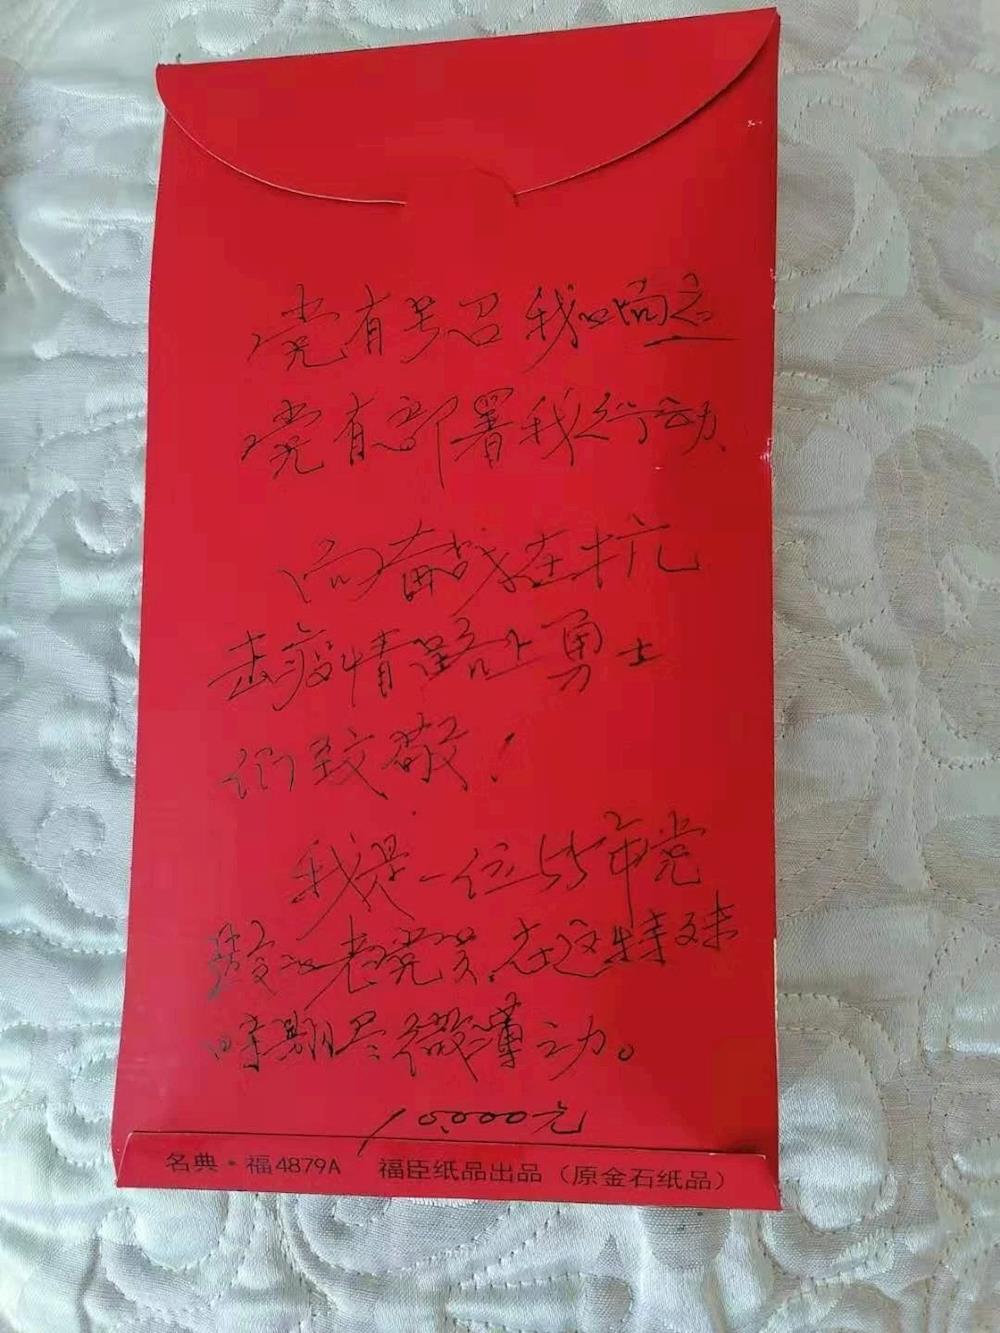 党有号召我响应
党有部署我行动
向奋战在抗
击疫情路上勇士
们致敬！
我是一位55年党
龄的老党员.在这特殊
时期尽微薄之力。
10,000元
名典·福4879A 福臣纸品出品（原金石纸品）